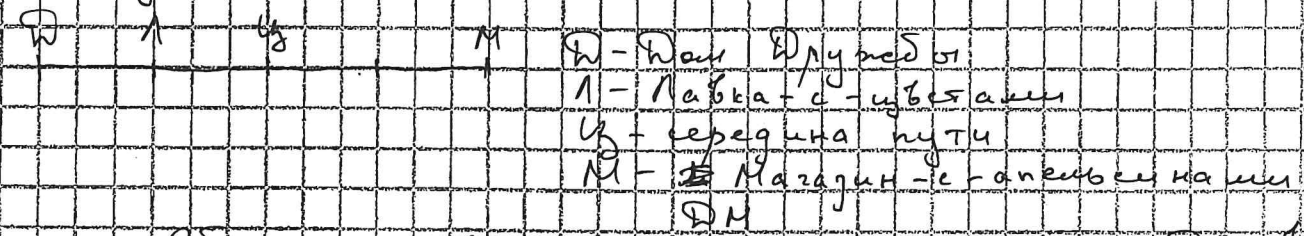 Д Л Ц М
Д - Дом Дружбы
Л - Лавка-с-цветами
Ц - середина пути
М - Магазин-с-апельсинами
ДМ